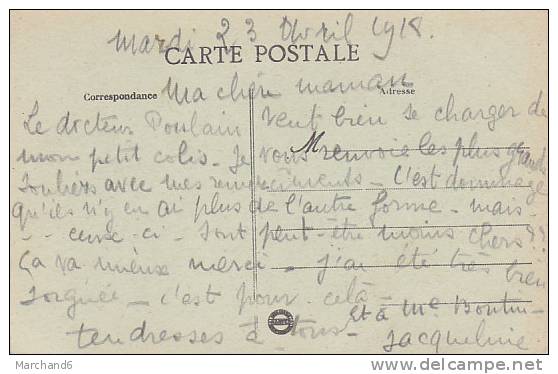 Mardi 23 Avril 1918.
CARTE POSTALE
Ma chère maman
Correspondance
Adresse
Le docteur Poulain veut bien se charger de
mon petit colis - Je vous renvoie les plus grands
M
souliers avec mes remerciements - C'est dommage
qu'il n'y en ai plus de l'autre forme - mais -
- ceux-ci - sont peut-être moins chers ??
Ça va mieux merci - j'ai été très bien
soignée - c'est pour celà -
Et à Me Boutin -
tendresses à tous -
Jacqueline
Marchand6
delcampe.net